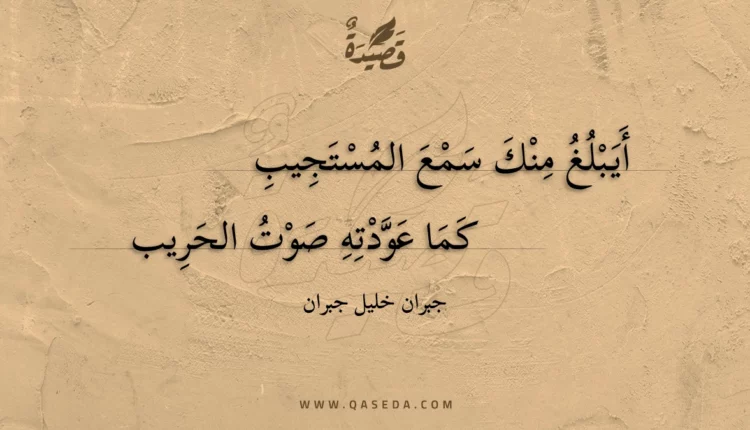 قَصِيدَةٌ
أَيَبْلُغُ مِنْكَ سَمْعَ المُسْتَجِيبِ
كَمَا عَوَّدْتِهِ صَوْتُ الحَرِيب
جبران خليل جبران
WWW.QASEDA.COM